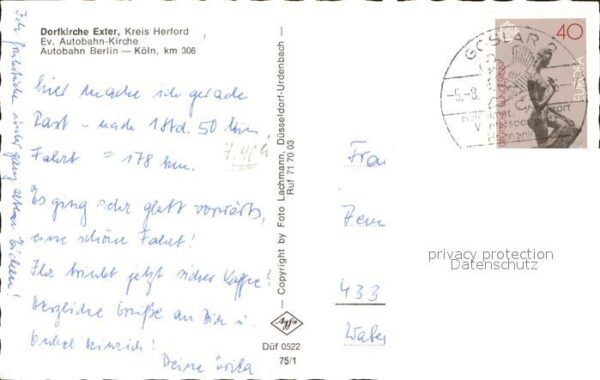 Dorfkirche Exter, Kreis Herford
Ev. Autobahn-Kirche
Autobahn Berlin — Köln, km 306
hier mache ich gerade
Rast – nach 1 Std. 50 Min.
Fahrt = 178 km.
Es ging sehr glatt vorwärts,
eine schöne Fahrt!
Ihr trinkt jetzt sicher Kaffee?
Herzliche Grüße an Dich u.
Onkel Heinrich!
Deine
— Copyright by Foto Lachmann, Düsseldorf-Urdenbach —
Ruf 71 70 03
Agfa
Düf 0522
75/1
GOSLAR 2
40
EUROPA
Frau
433
privacy protection
Datenschutz